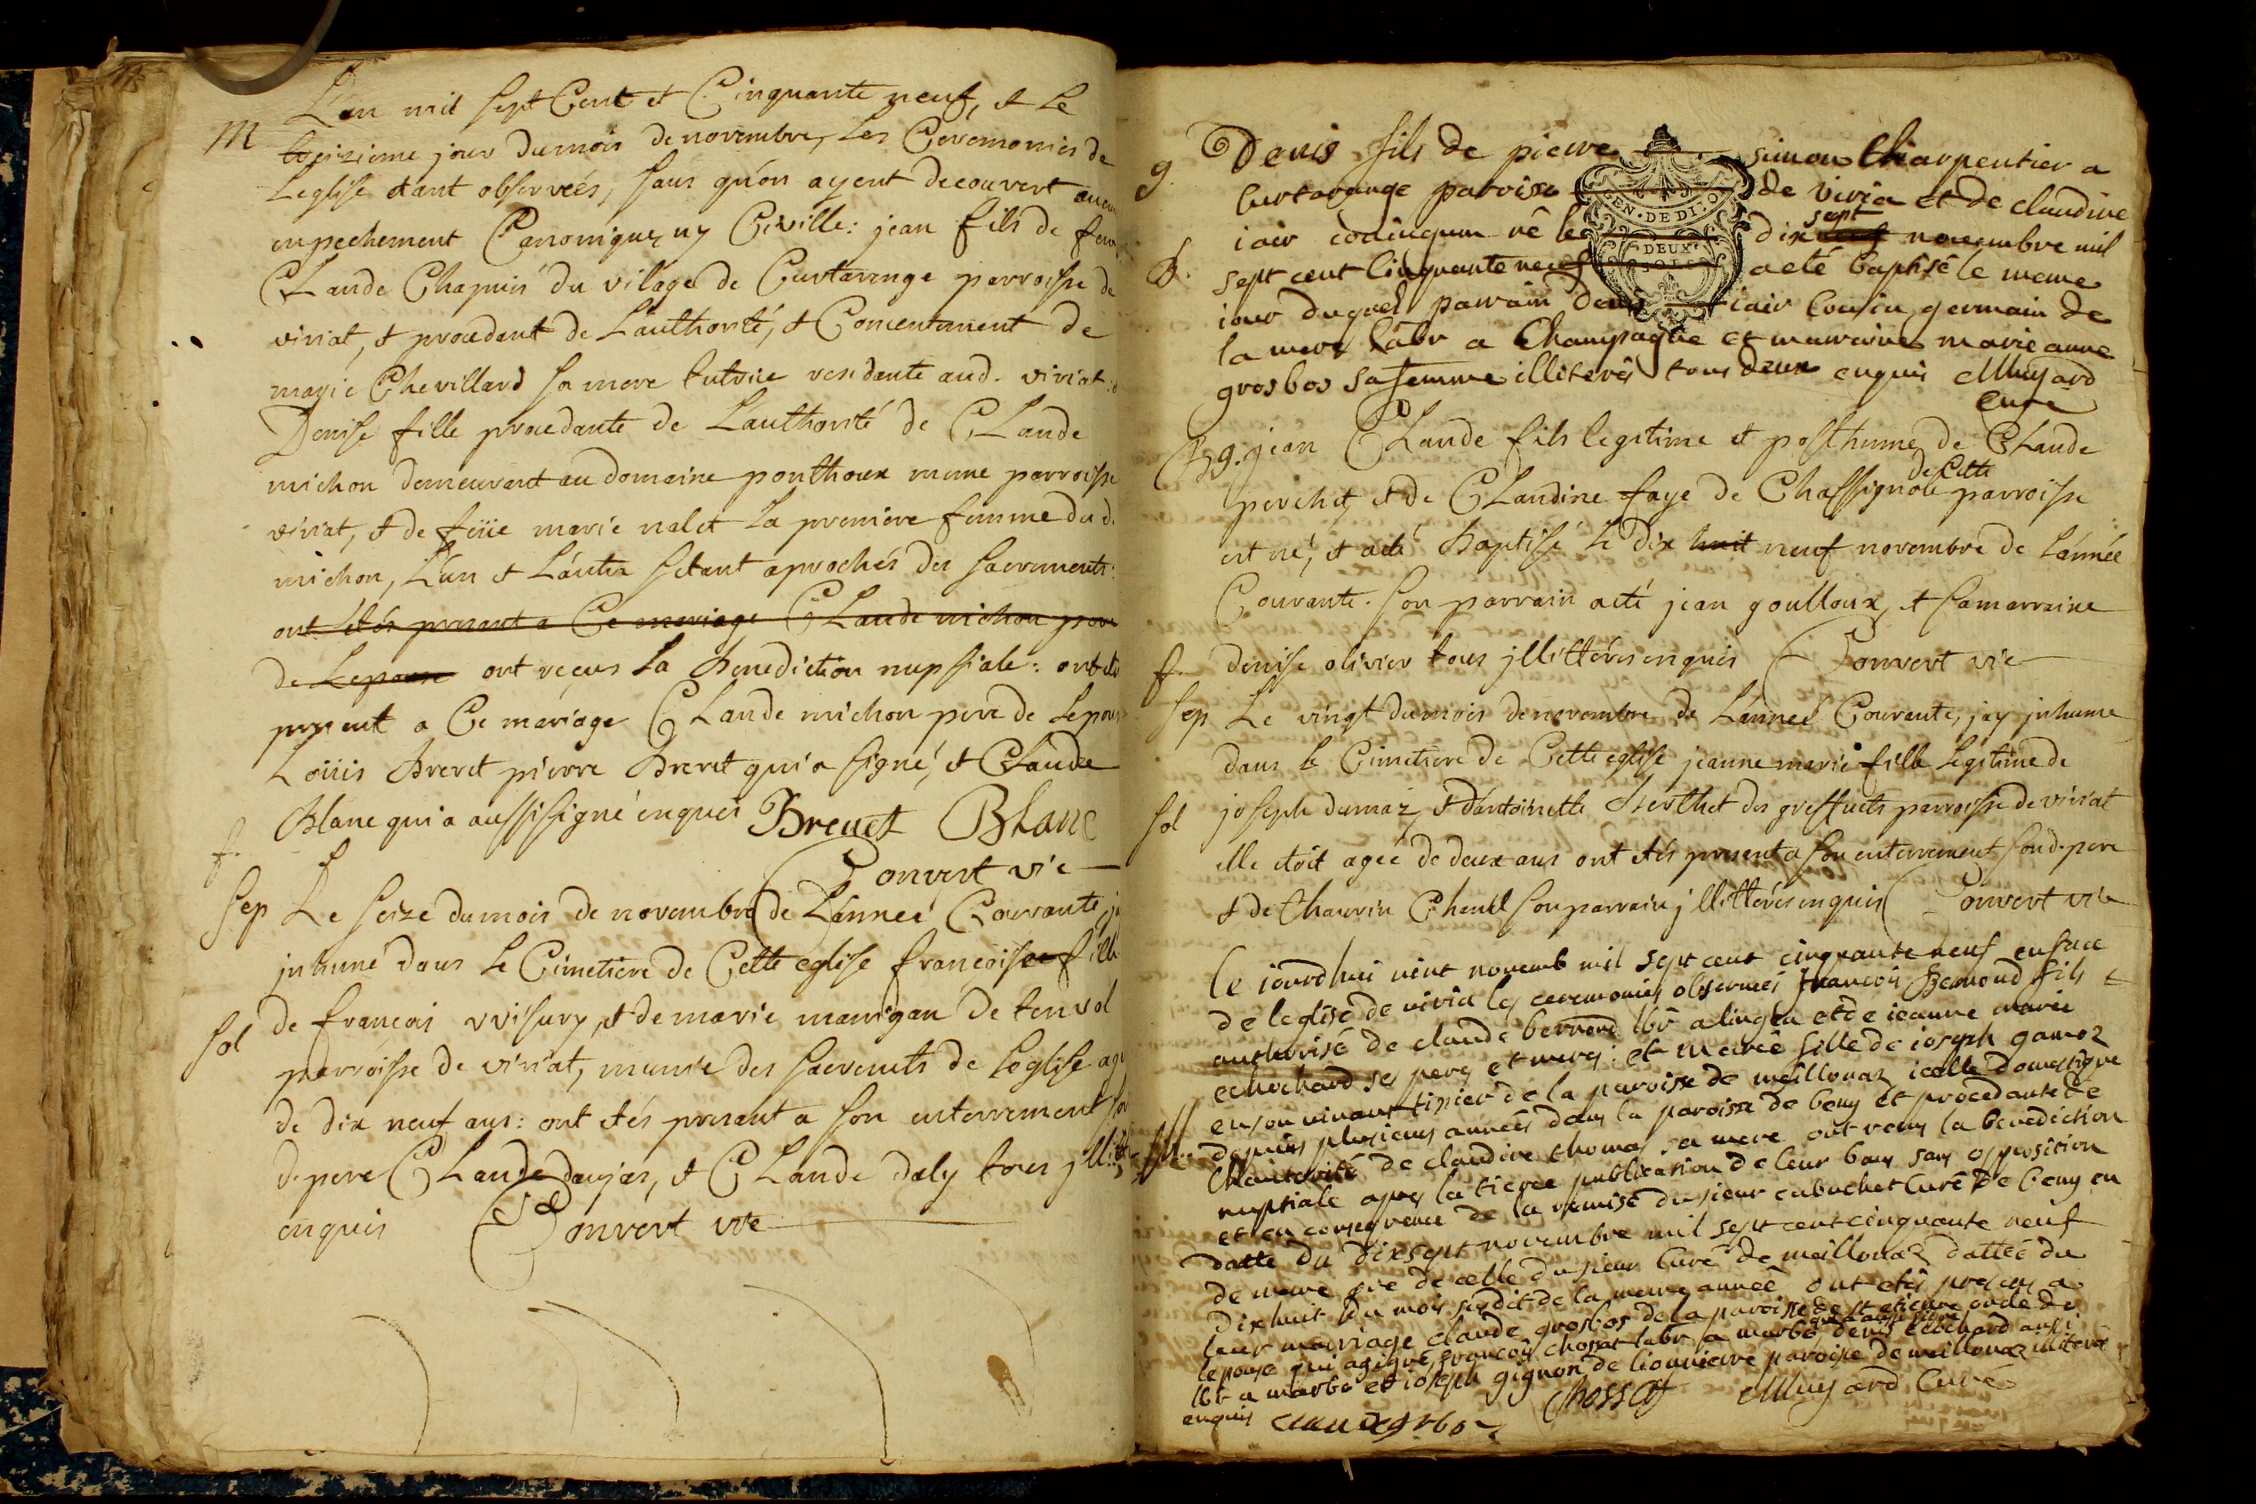 M L'an mil sept Cent et Cinquante neuf, et Le
treizieme jour du mois de novembre, Les Ceremonies de
L'eglise étant observeés, sans qu'on ayent decouvert aucun
enpechement Canonique, ny Civille: jean fils de feu
CLaude Chapuis du vilage de Curtaringe parroisse de
viriat, et procedant de L'authorité, et Consentement de
marie Chevillard sa mere tutrice residante aud. viriat:
Denise fille procedante de Lauthorité de CLaude
michon demeurant au domaine ponthoux meme parroisse
viriat, et de feüe marie nalet La premiere femme dud.
michon, L'un et L'autre s'etant aprochés des sacrements:
ont étés present a Ce mariage CLaude michon pere
de L'epouse ont reçus La Benediction nupsiale: ont etés
present a Ce mariage CLaude michon pere de Lepouse
Loüis Brevet pierre Brevet qui a signé, et CLaude
Blanc qui a aussi signé enquis Brevet Blanc
f. Convert vic
Sep Le seize du mois de novembre de L'anneé Courante, j'ay
inhumé dans Le Cimetiere de Cette eglise françoise fille
de françois vvisury, et de marie manigan de tenvol
sol parroisse de viriat, munie des sacrements de L'eglise ageé
de dix neuf ans: ont étés present a son enterrement son
d. pere CLaude daujas, et CLaude daly tous jllitt
enquis Convert vic
g. Denis fils de pierre simon Charpentier a
Curtarange paroisse de viria et de claudine
GEN. DE DIJON
iair conjugum né le dix sept neuf novembre mil
DEUX
SOLS
B. sept cent Cinquante neuf a eté baptisé le meme
iour duquel parrain denis iair Cousin germain de
la mere labr a Champagne et marraine marie anne
grosbos sa femme illiterés tous deux enquis Muyard
Cure
B g. jean CLaude fils legitime et posthume de CLaude
perchet, et de CLaudine faye de Chassignole de Cette parroisse
est né, et a eté Baptisé le dix huit neuf novembre de L'année
Courante. son parrain a eté jean goulloux, et sa marraine
f. denise olivier tous jllittérés enquis Convert vic
Sep Le vingt du mois de novembre de L'anneé Courante, j'ay jnhumé
dans le Cimetiere de Cette eglise jeanne marie fille Legitime de
sol joseph damaz, et d'antoinette Berthet des greffets parroisse de viriat
elle étoit ageé de deux ans ont étés present a son enterrement son d. pere
et de Chanrin Chanel son parrain jllittérés enquis Convert vic
le iourd'hui vint novemb mil sept cent cinquante neuf en face
de leglise de viria les ceremonies observeés francois Bernoud fils et
authorisé de claude bernoud lbr a lingea et de ieanne marie
echochard ses pere et mere: et marie fille de ioseph gamoz
en son vivant tixier de la paroisse de meillonaz icelle domestique
depuis plusieurs années dans la paroisse de beny et procedante de
M. lhautorité de claudine thomas sa mere ont reçu la benediction
nuptiale apres la tierce publication de leur bans sans opposition
et en consequence de la remise du sieur cabuchet Curé de beny en
datte du dix sept novembre mil sept cent cinquante neuf
de meme que de celle du sieur Curé de meillonaz dattée du
dix huit du mois susdit de la meme année ont etés presens a
leur mariage claude grosbos de la paroisse de st etienne oncle de
lepouse qui a signé, francois chossat labr a marbo qui a aussi signé denis echochard aussi
lbr a marbo et ioseph gignon de lionniere paroisse de meillonaz illiterés
enquis claude grobos Chossat Muyard Curé